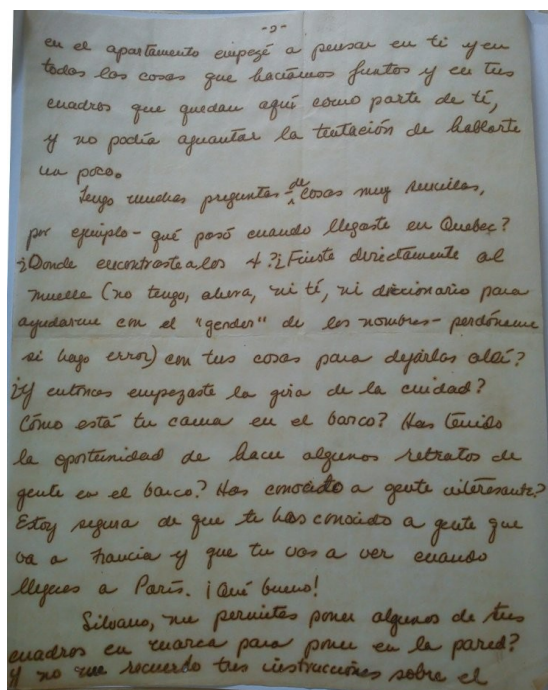 -2-
en el apartamento empezé a pensar en ti y en
todas las cosas que hacíamos juntos y en tus
cuadros que quedan aquí como parte de tí,
y no podía aguantar la tentación de hablarte
un poco.
Tengo muchas preguntas - de cosas muy sencillas,
por ejemplo - qué pasó cuando llegaste en Quebec?
¿Donde encontraste a los 4? ¿Fuiste directamente al
muelle (no tengo, ahora, ni tí, ni diccionario para
ayudarme con el "gender" de los nombres - perdóneme
si hago error) con tus cosas para dejarlas allí?
¿Y entonces empezaste la gira de la cuidad?
Cómo está tu cama en el barco? Has tenido
la oportunidad de hacer algunos retratos de
gente en el barco? Has conocido a gente interesante?
Estoy segura de que te has conocido a gente que
va a Francia y que tu vas a ver cuando
llegues a París. ¡Qué bueno!
Silvano, me permites poner algunos de tus
cuadros en marca para poner en la pared?
Y no me recuerdo tus instrucciones sobre el